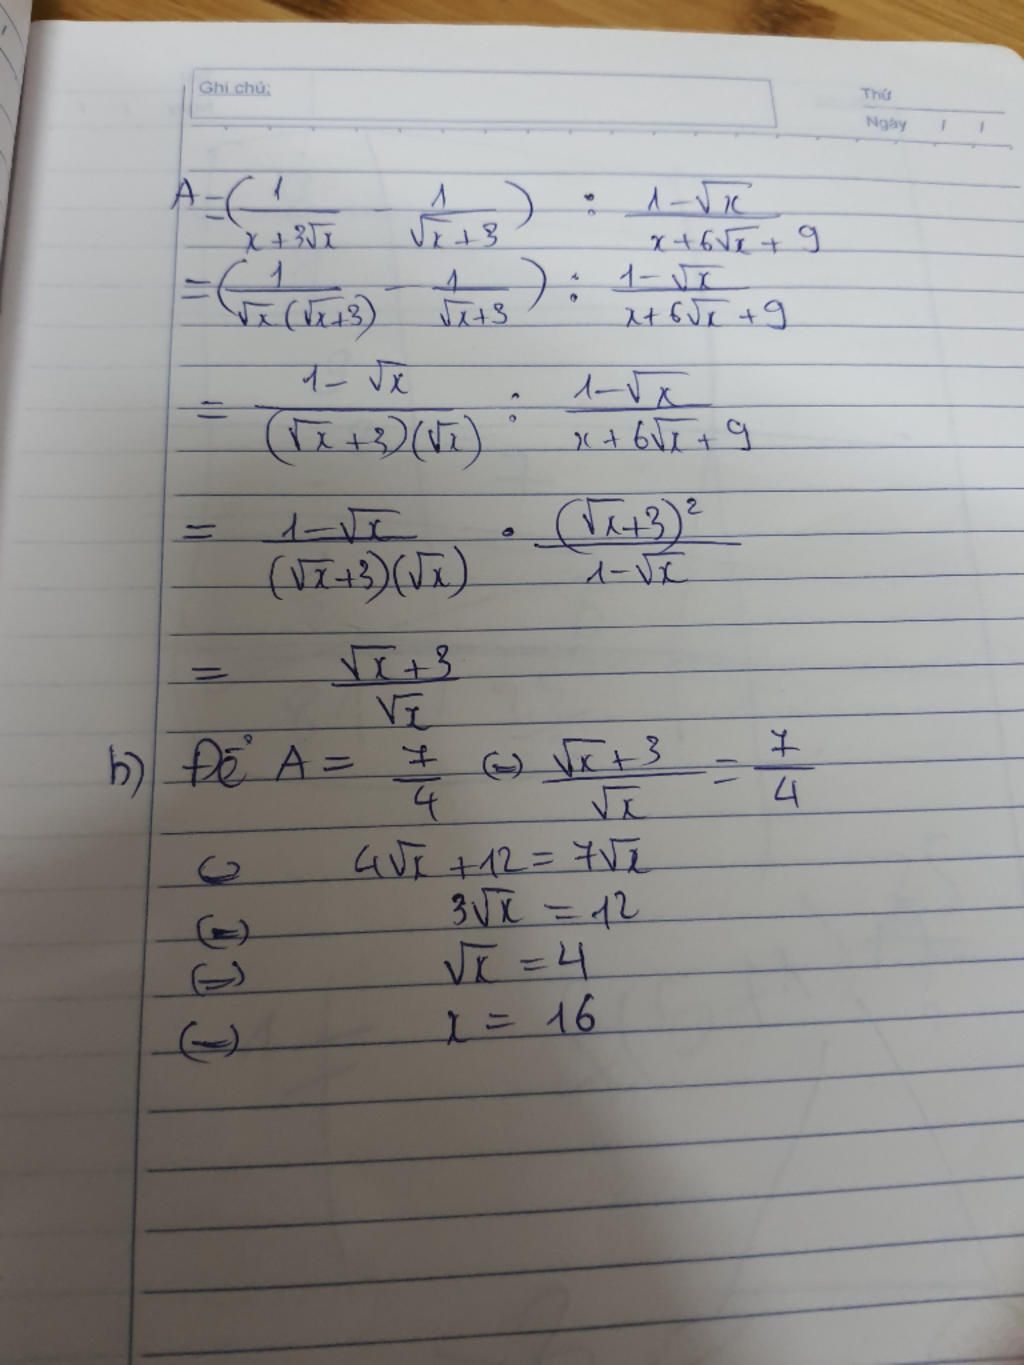 Ghi chú:
Thứ
Ngày / /
A = (1/(x+3√x) - 1/(√x+3)) : (1-√x)/(x+6√x+9)
= (1/(√x(√x+3)) - 1/(√x+3)) : (1-√x)/(x+6√x+9)
= (1-√x)/((√x+3)(√x)) : (1-√x)/(x+6√x+9)
= (1-√x)/((√x+3)(√x)) . (√x+3)²/(1-√x)
= (√x+3)/√x
b) Để A = 7/4 (=) (√x+3)/√x = 7/4
(=) 4√x + 12 = 7√x
(=) 3√x = 12
(=) √x = 4
(=) x = 16